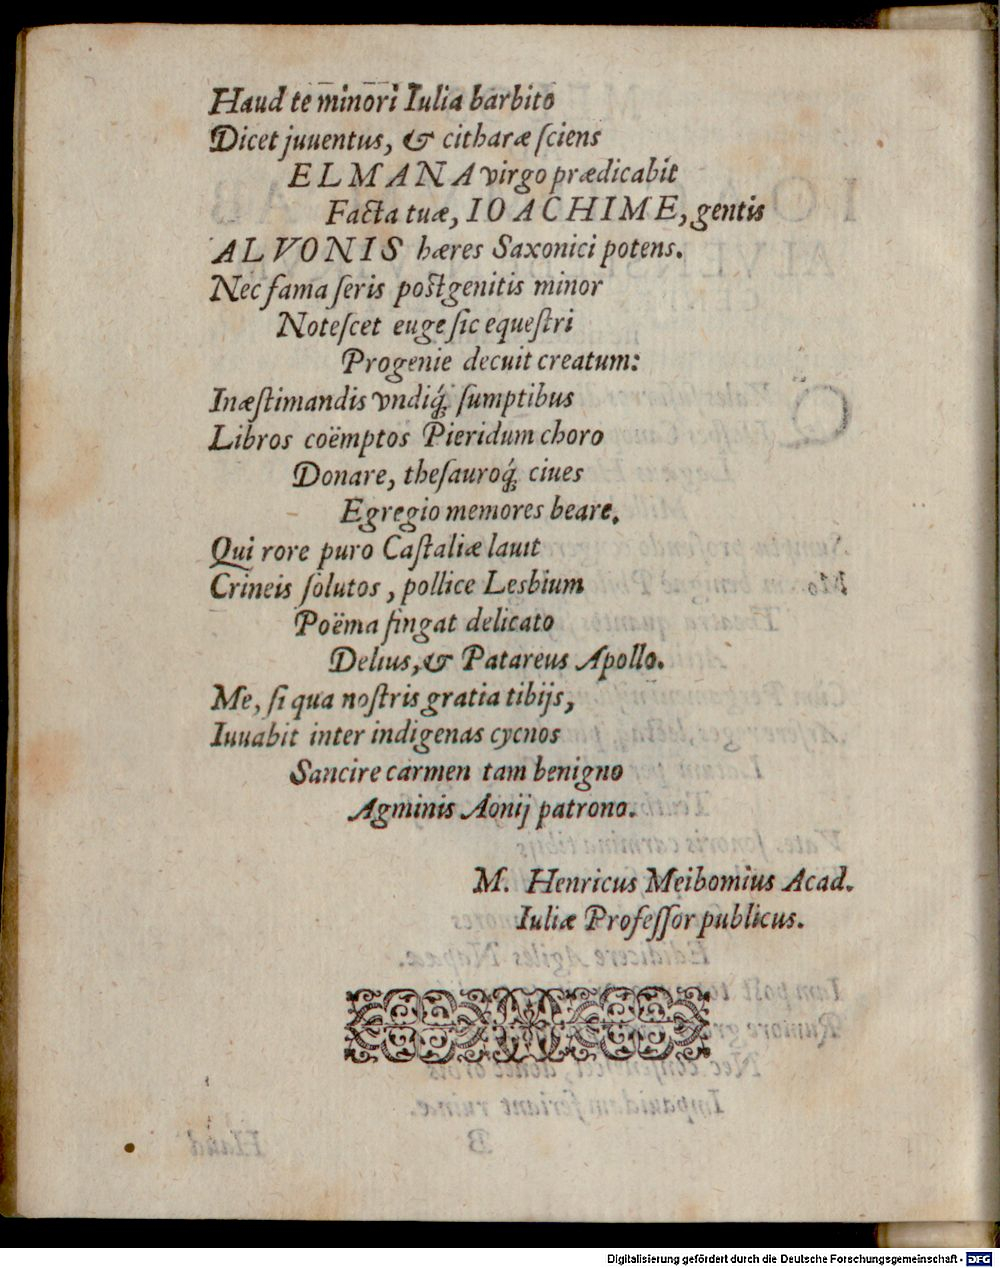 Haud te minori Iulia barbito
Dicet juuentus, & citharæ ſciens
ELMANA virgo prædicabit
Facta tuæ, IOACHIME, gentis
ALVONIS hæres Saxonici potens.
Nec fama ſeris poſtgenitis minor
Noteſcet euge ſic equeſtri
Progenie decuit creatum:
Inæſtimandis vndiq́; ſumptibus
Libros coëmptos Pieridum choro
Donare, theſauroq́; ciues
Egregio memores beare.
Qui rore puro Caſtaliæ lauit
Crineis ſolutos, pollice Lesbium
Poëma fingat delicato
Delius, & Patareus Apollo.
Me, ſi qua noſtris gratia tibijs,
Iuuabit inter indigenas cycnos
Sancire carmen tam benigno
Agminis Aonij patrono.
M. Henricus Meibomius Acad.
Iuliæ Profeſſor publicus.
Digitalisierung gefördert durch die Deutsche Forschungsgemeinschaft - DFG